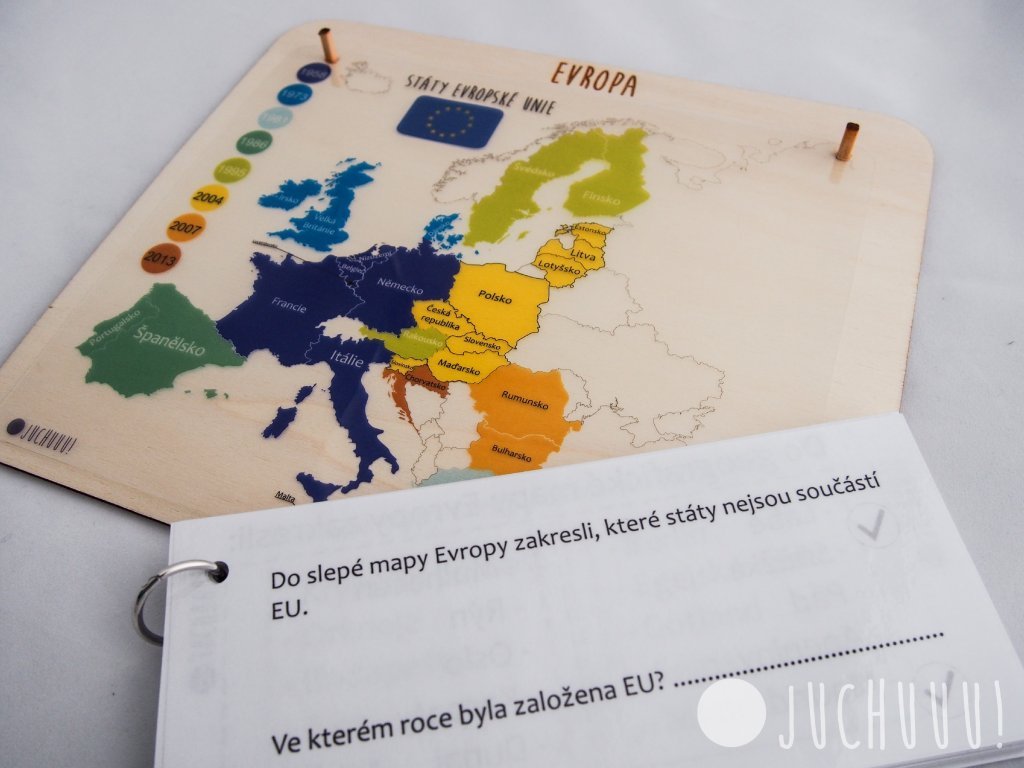 EVROPA
STÁTY EVROPSKÉ UNIE
1958
1973
1981
1986
1995
2004
2007
2013
Švédsko
Finsko
Estonsko
Litva
Lotyšsko
Irsko
Velká
Británie
Belgie
Německo
Polsko
Francie
Česká
republika
Slovensko
Rakousko
Maďarsko
Portugalsko
Španělsko
Itálie
Chorvatsko
Rumunsko
Bulharsko
Malta
JUCHUUU!
Do slepé mapy Evropy zakresli, které státy nejsou součástí
EU.
Ve kterém roce byla založena EU? ........................................
JUCHUUU!